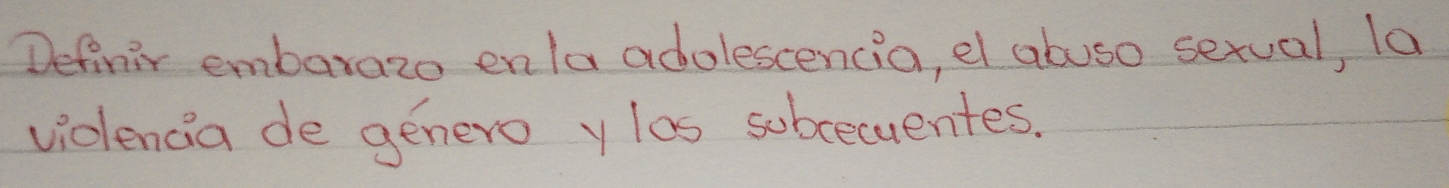 Definir embarazo en la adolescencia, el abuso sexual, la
violencia de género y los subcecuentes.